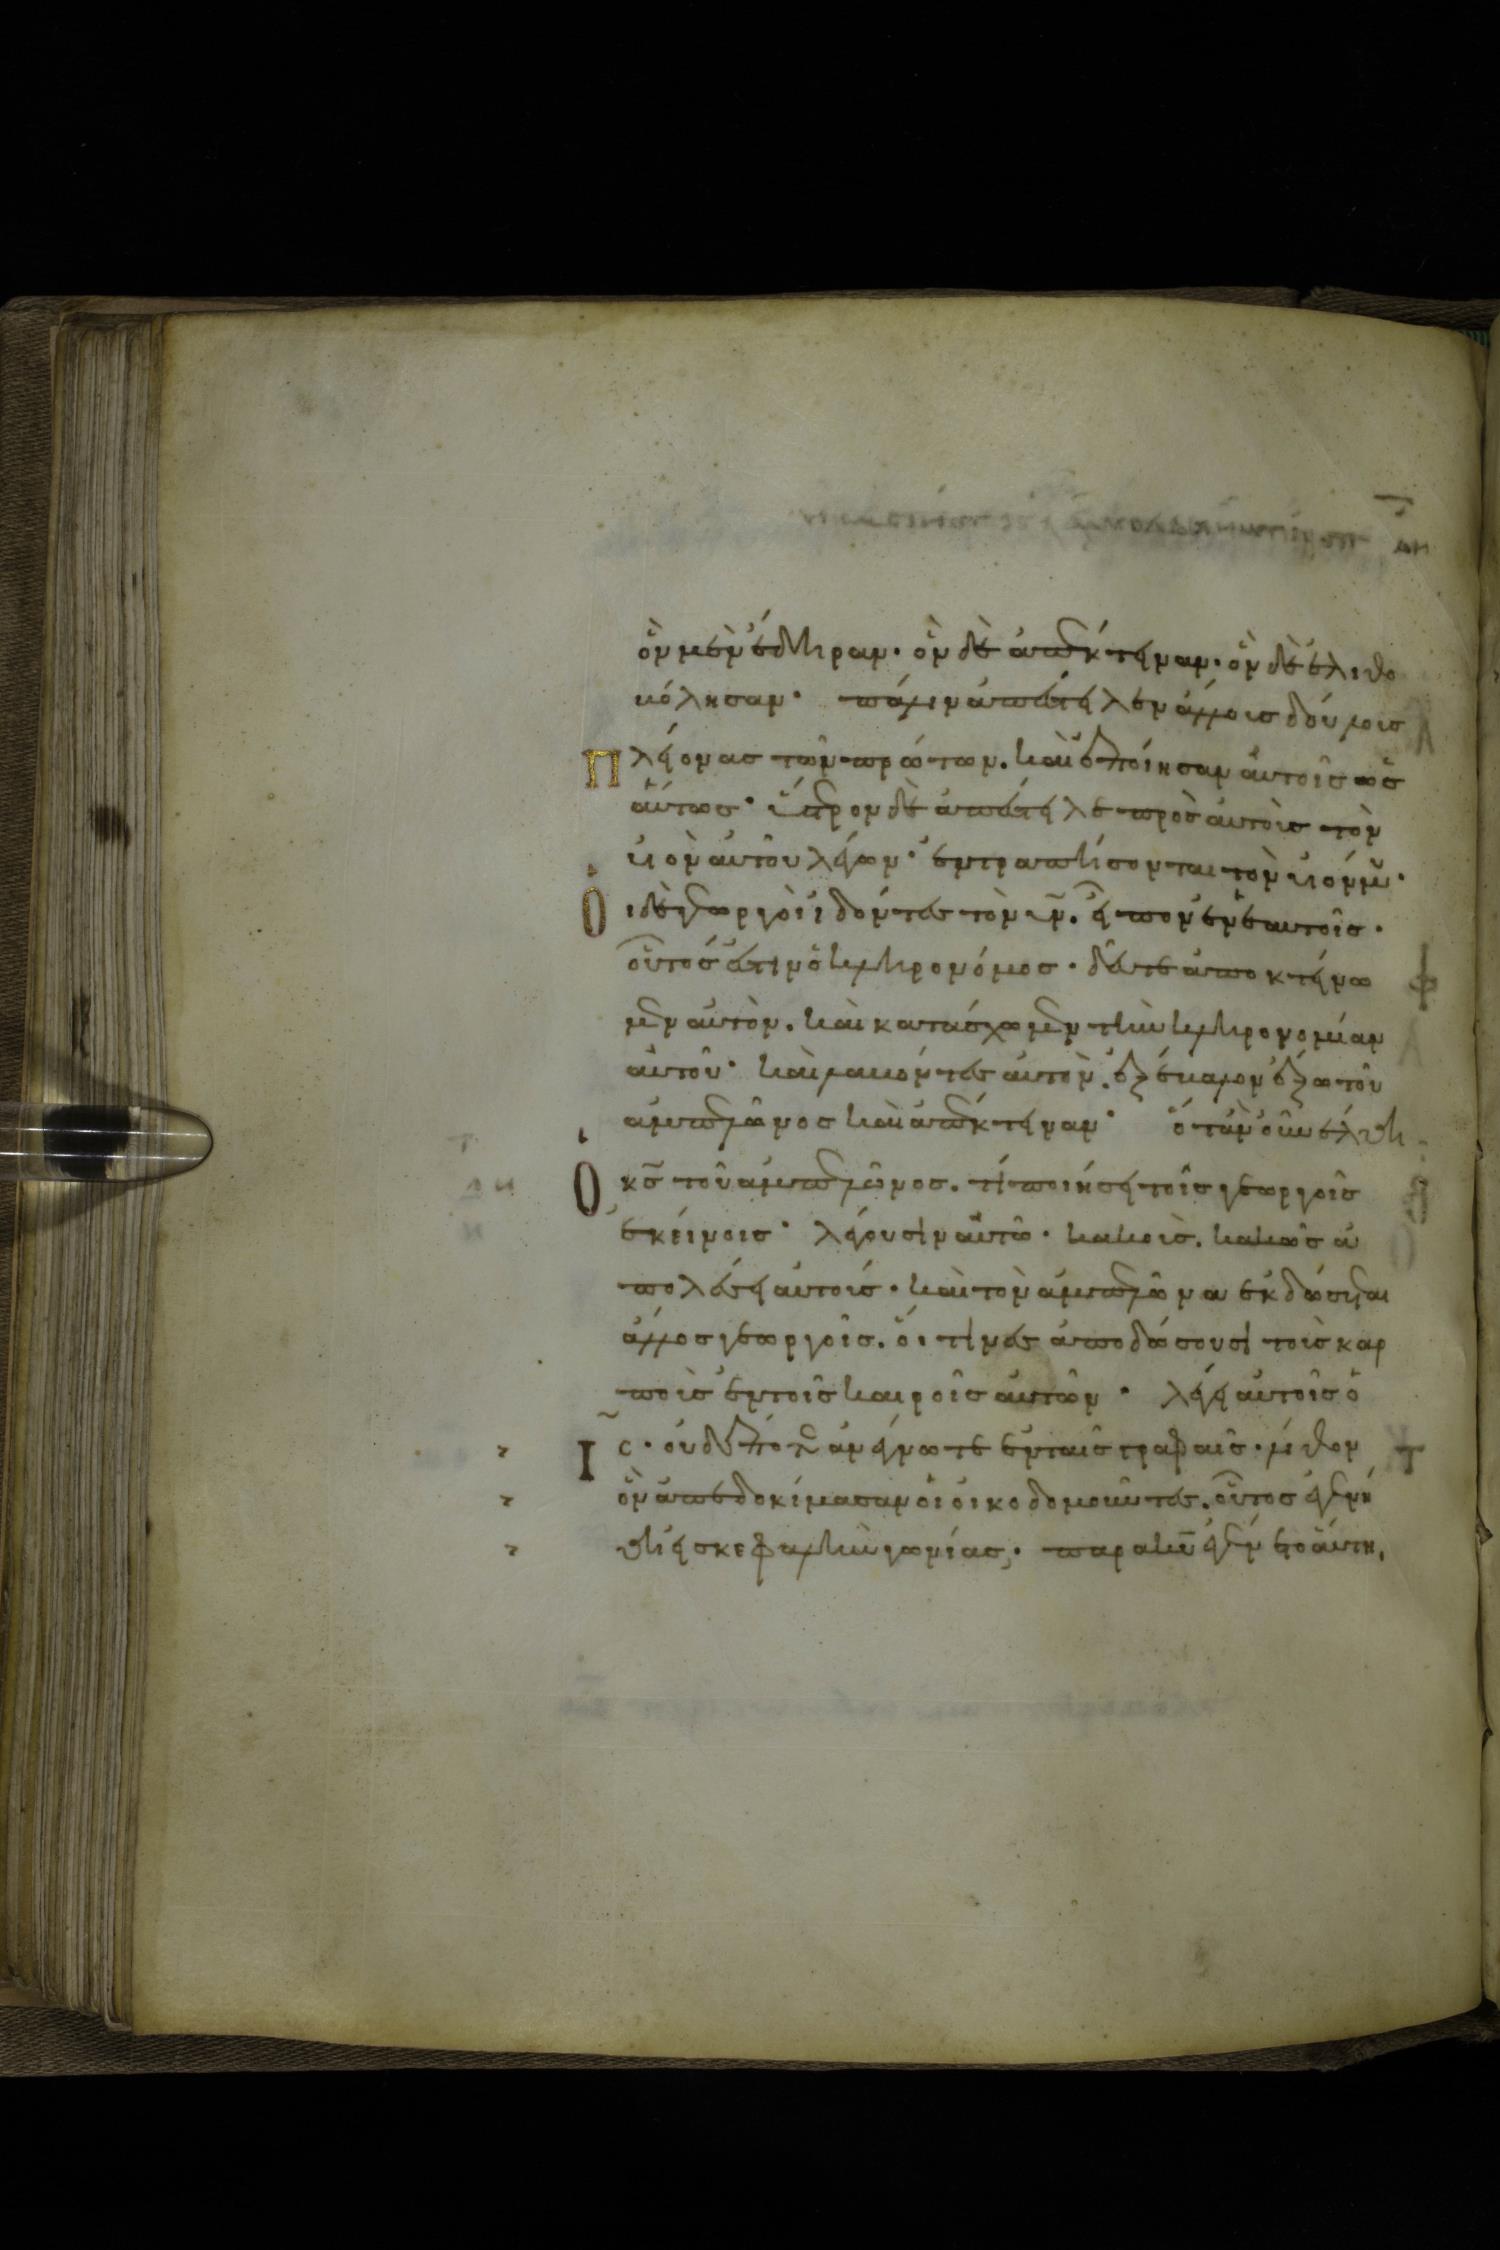 ὃν μὲν ἔδηραν· ὃν δὲ ἀπέκτειναν· ὃν δὲ ἐλιθο
βόλησαν· πάλιν ἀπέστειλεν ἄλλους δούλους
Πλείονας τῶν πρώτων. καὶ ἐποίησαν αὐτοῖς ὡσ
αύτως· ὕστερον δὲ ἀπέστειλε πρὸς αὐτοὺς τὸν
υἱὸν αὐτοῦ λέγων· ἐντραπήσονται τὸν υἱόν μου·
Οἱ δὲ γεωργοὶ ἰδόντες τὸν υν̅. εἶπον ἐν ἑαυτοῖς·
οὗτός ἐστιν ὁ κληρονόμος· δεῦτε ἀποκτείνω
μεν αὐτὸν. καὶ κατάσχωμεν τὴν κληρονομίαν
αὐτοῦ· καὶ λαβόντες αὐτὸν. ἐξέβαλον ἔξω τοῦ
ἀμπελῶνος καὶ ἀπέκτειναν· ὅταν οὖν ἔλθη
Ὁ κς̅ τοῦ ἀμπελῶνος. τί ποιήσει τοῖς γεωργοῖς
ἐκείνοις· λέγουσιν αὐτῶ· κακοὺς. κακῶς ἀ
πολέσει αὐτούς· καὶ τὸν ἀμπελῶνα ἐκδώσεται
ἄλλοις γεωργοῖς. οἵτινες ἀποδώσουσι τοὺς καρ
ποὺς ἐν τοῖς καιροῖς αὐτῶν· λέγει αὐτοῖς ὁ
Ις̅· οὐδέποτε ἀνέγνωτε ἐν ταῖς γραφαῖς· λίθον
ὃν ἀπεδοκίμασαν οἱ οἰκοδομοῦντες. οὗτος ἐγενή
θη εἰς κεφαλὴν γωνίας· παρὰ κυ̅ ἐγένετο αὕτη,